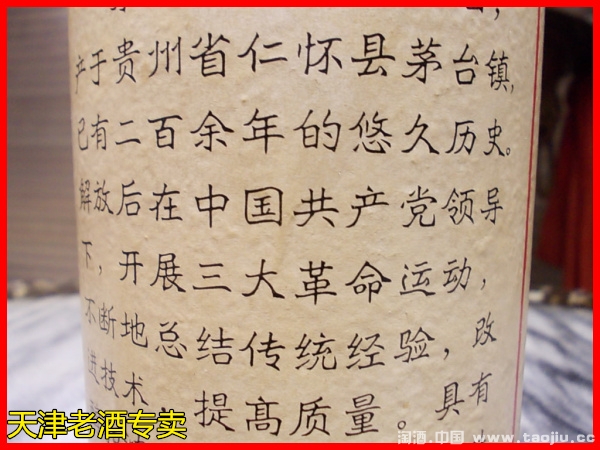 产于贵州省仁怀县茅台镇,
已有二百余年的悠久历史。
解放后在中国共产党领导
下,开展三大革命运动,
不断地总结传统经验,改
进技术 提高质量。具有
天津老酒专卖
淘酒.中国 www.taojiu.cc